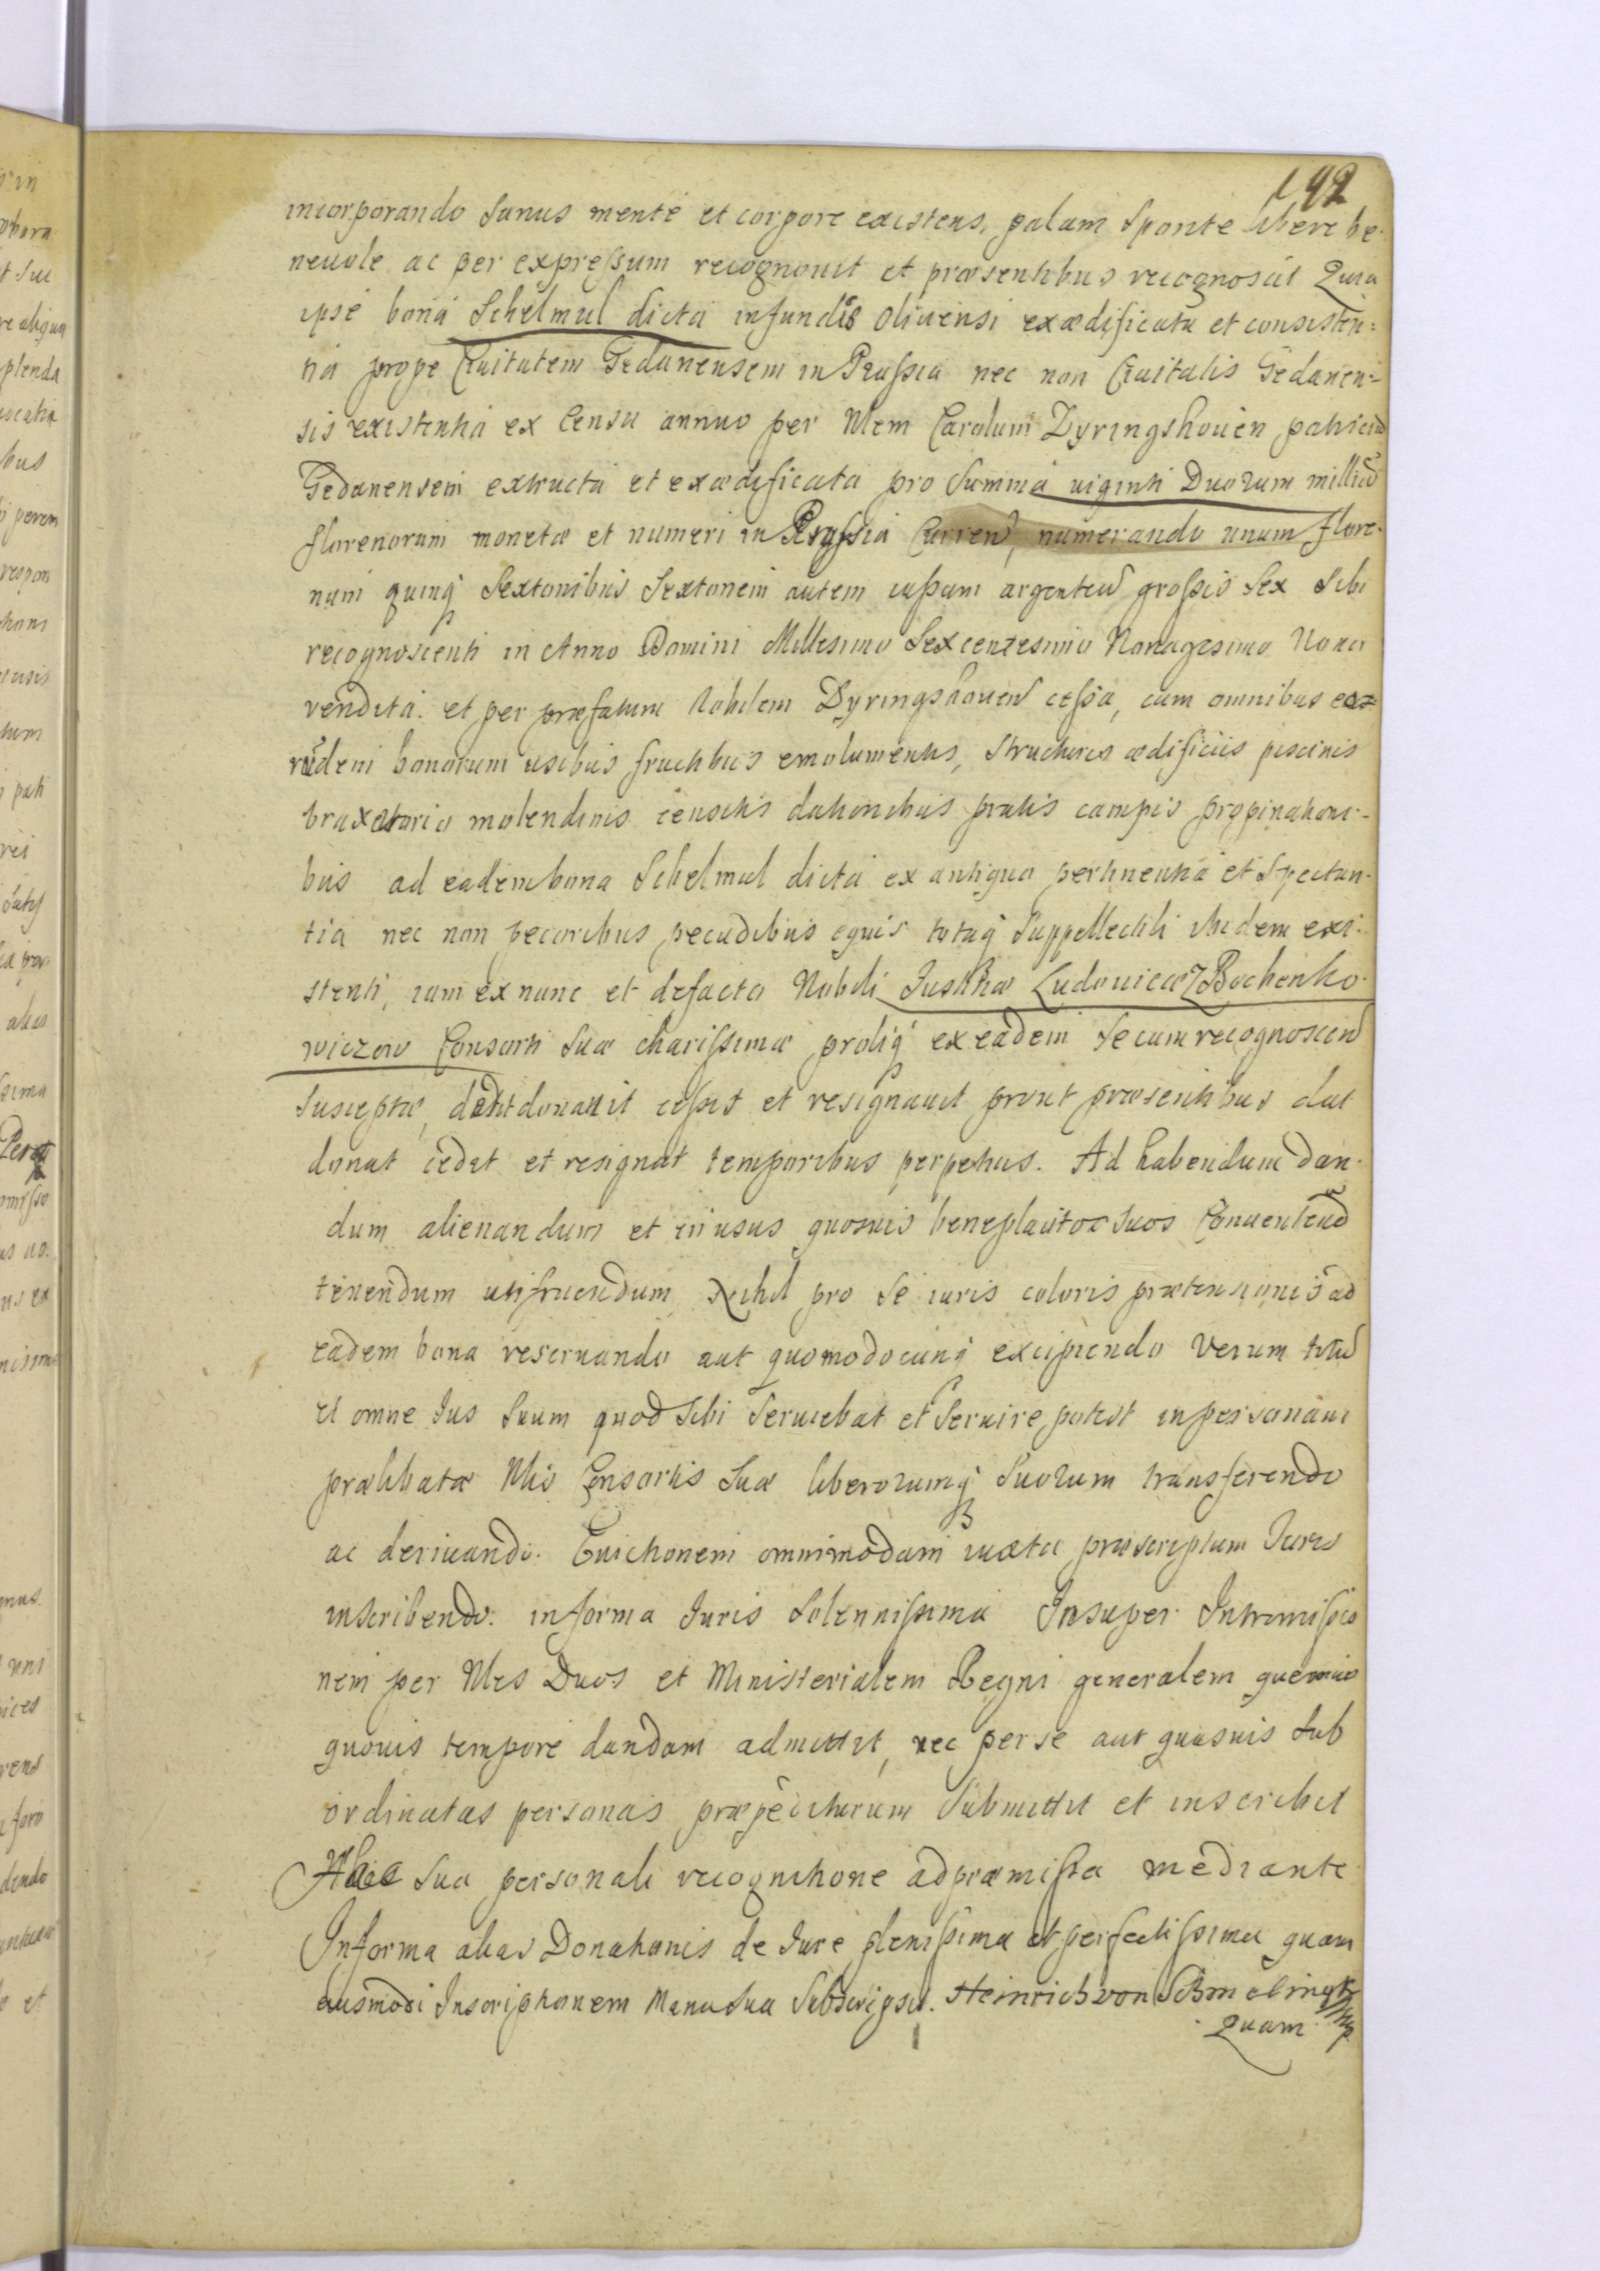 192
incorporando Sanus mente et corpore existens, palam Sponte libere be-
nevole ac per expressum recognovit et præsentibus recognoscit Quia
ipse bona Schelmul dicta in fundis Olivensi exædificata et consisten=
tia prope Civitatem Gedanensem in Prussia nec non Civitatis Gedanen=
sis existentia ex Censu annuo per Nlem Carolum Dyringshoven patriciu
Gedanensem extructa et exædificata pro Summa viginti Duorum milliu
florenorum monetæ et numeri in Prussia Curren, numerando unum flore-
num quinq Sextonibus Sextonem autem cussum argenteu grossis Sex Sibi
recognoscenti in Anno Domini Millesimo Sexcentesimo Nonagesimo Nono
vendita et per præfatum Nobilem Dyringshoven cessa, cum omnibus eo=
rudem bonorum usibus fructibus emolumentis, structuris ædificiis piscinis
braxatorio molendinis censitis dationibus pratis campis propinationi-
bus ad eadem bona Schelmul dicta ex antiquo pertinentia et Spectan-
tia nec non pecoribus pecudibus equis totaq Suppellectili ibidem exi-
stenti, iam ex nunc et de facto Nobili Justinæ Ludovicæ Bochenko-
wiczow Consorti Suæ charissimæ proliq ex eadem Secum recognoscen
Susceptæ, dedit donavit cessit et resignavit prout præsentibus dat
donat cedit et resignat temporibus perpetuis. Ad habendum dan-
dum alienandum et in usus quosvis beneplacitos Suos Convertend
tenendum utifruendum Nihil pro Se iuris coloris prætensionis ad
eadem bona reservando aut quomodocunq excipiendo Verum totu
et omne Jus Suum quod Sibi Serviebat et Servire potest in personam
prælibatæ Nlis Consortis Suæ liberorumq Suorum transferendo
ac derivando. Evictionem omnimodam iuxta præscriptum Juris
inscribendo in forma Juris Solennissima Insuper Intromissio
nem per Nles Duos et Ministerialem Regni generalem quemvis
quovis tempore dandam admittit, nec per se aut quasvis Sub
ordinatas personas præpediturum Submittit et inscribit
Hac Sua personali recognitione ad præmissa mediante
In forma alias Donationis de Jure plenissima et perfectissima quam
eiusmodi Inscriptionem Manu Sua Subscripsit. Heinrich von Schmelingk mp
Quam